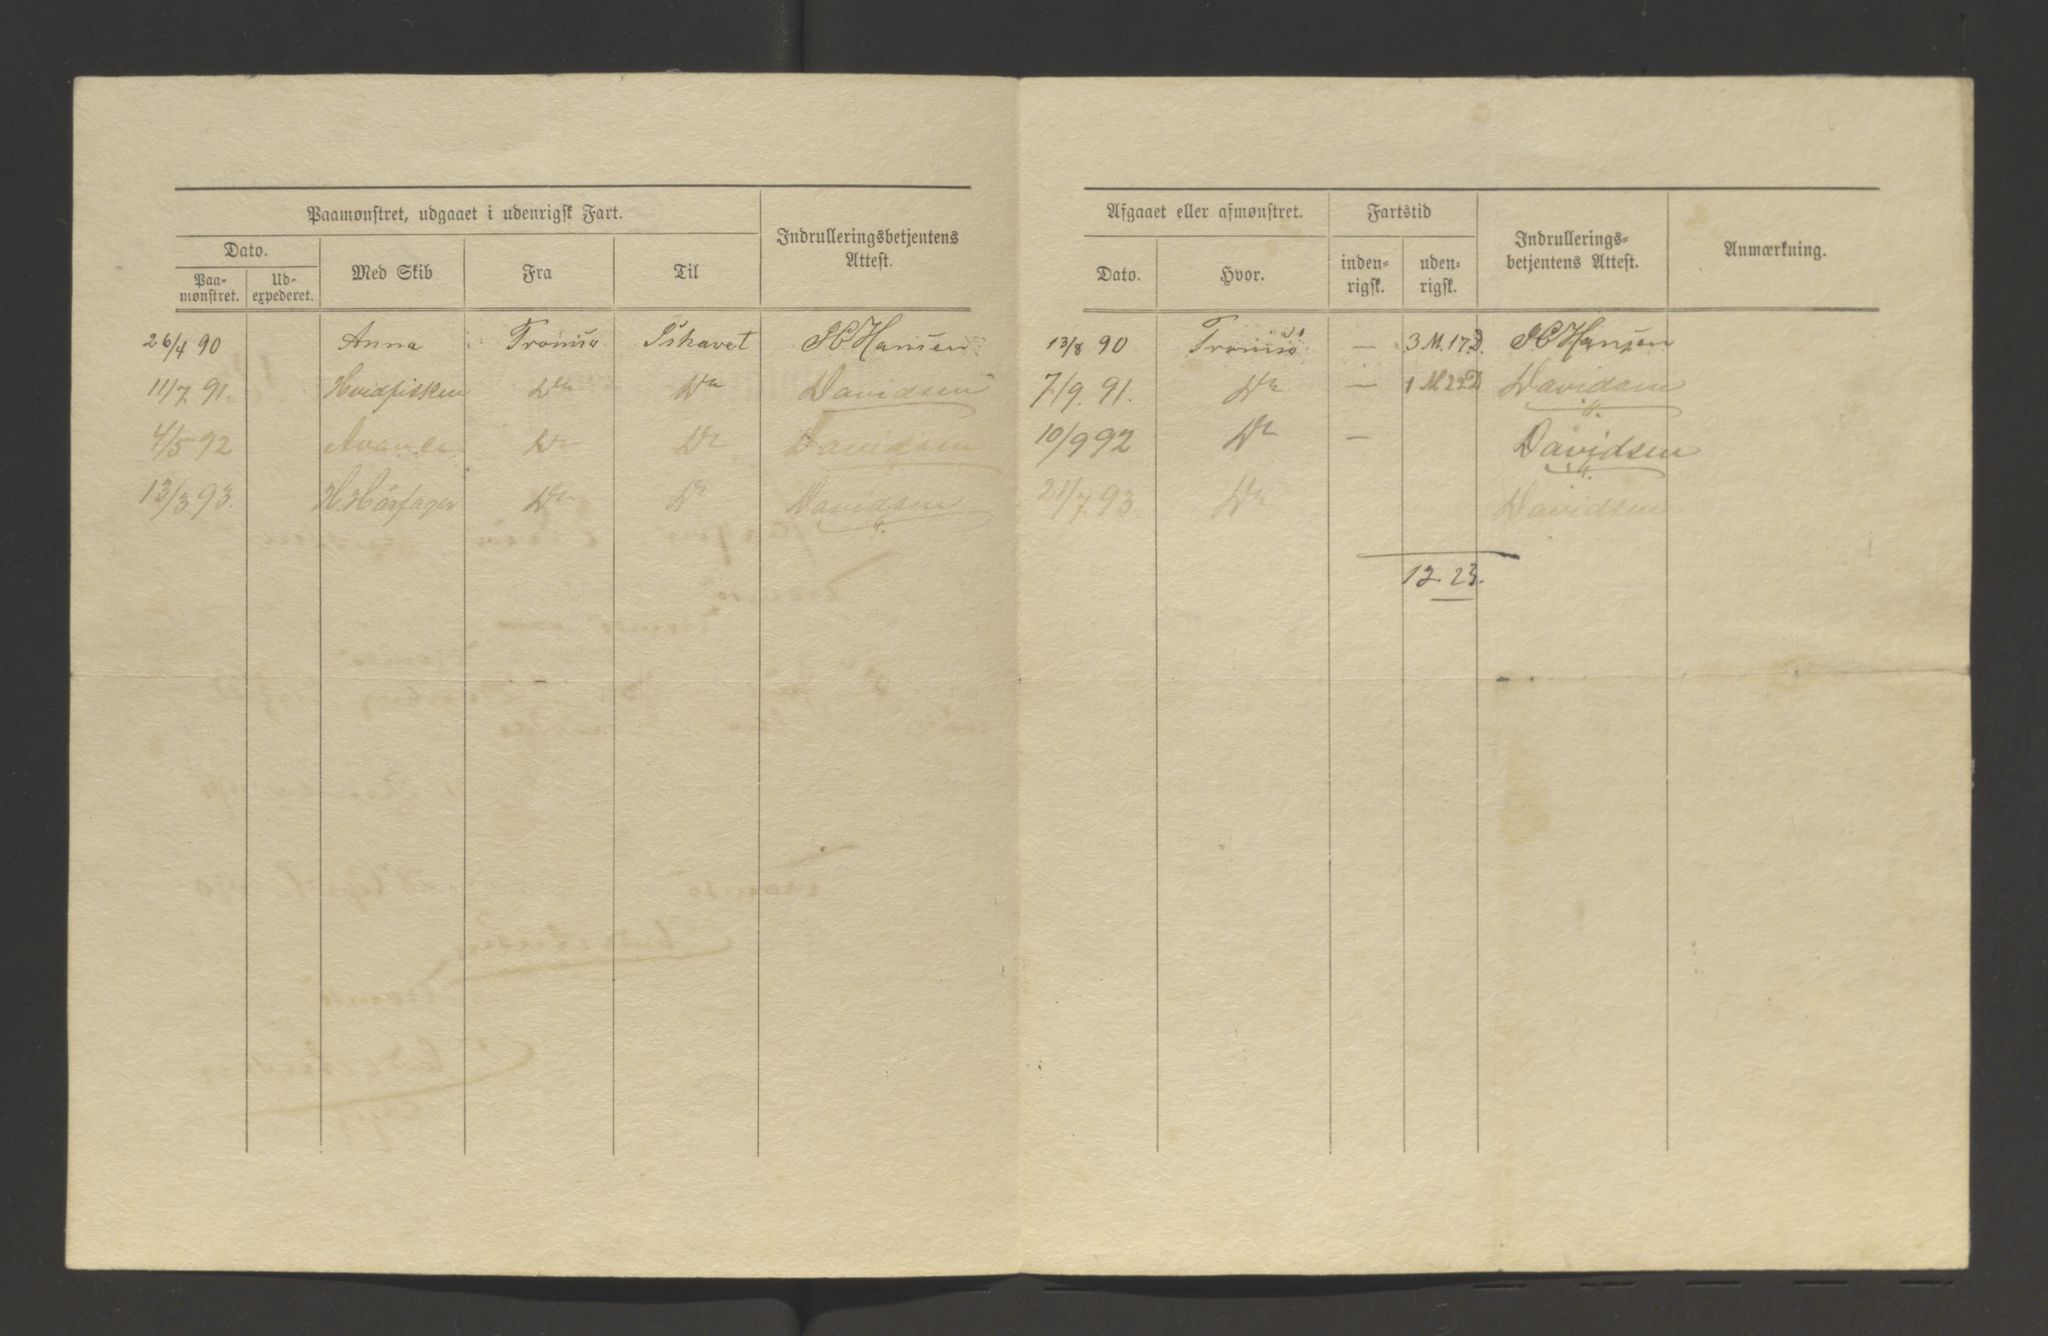 Paamønstret, udgaaet i udenrigsk Fart.
Indrulleringsbetjentens Attest.
Dato.
Med Skib
Fra
Til
Paa-
mønstret.
Ud-
expederet.
26/4 90 Anna Tromsø Ishavet H Hansen
11/7 91. Hvidfisken Do Do Davidsen
4/5 92 Do Do Davidsen
13/3 93. H. Hårfager Do Do Davidsen
Afgaaet eller afmønstret.
Fartstid
Indrullerings-
betjentens Attest.
Anmærkning.
Dato.
Hvor.
inden-
rigsk.
uden-
rigsk.
13/8 90 Tromsø — 3 M. 17 D. H Hansen
7/9. 91. Do — 1 M 22 D Davidsen
10/9 92 Do — Davidsen
21/7. 93. Do Davidsen
12. 23.